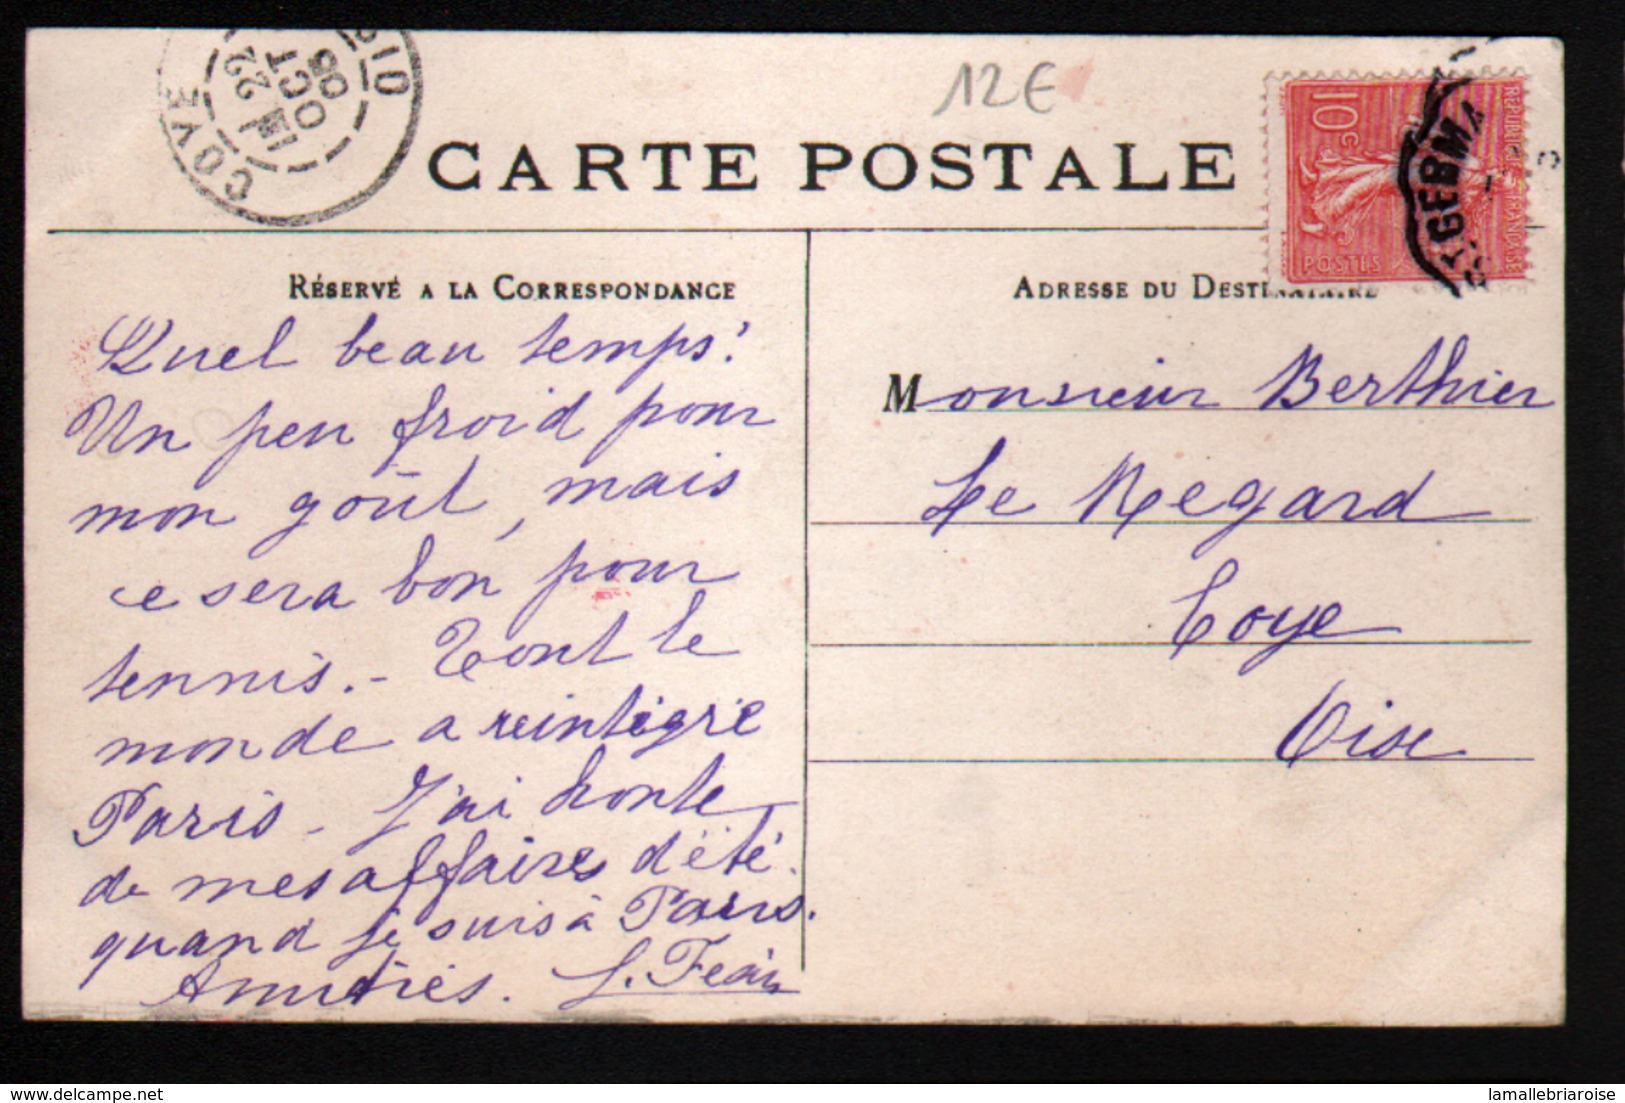 12€
COYE
OCT
05
CARTE POSTALE
10c
POSTES
RÉSERVÉ A LA CORRESPONDANCE
ADRESSE DU DESTINATAIRE
Quel beau temps!
Un peu froid pour
mon goût, mais
ce sera bon pour
tennis. - Tout le
monde a réintégré
Paris - J'ai honte
de mes affaires d'été.
quand je suis à Paris.
Amitiés.
Monsieur Berthier
Le Regard
Coye
Oise
Delcampe.net
lamallebriaroise